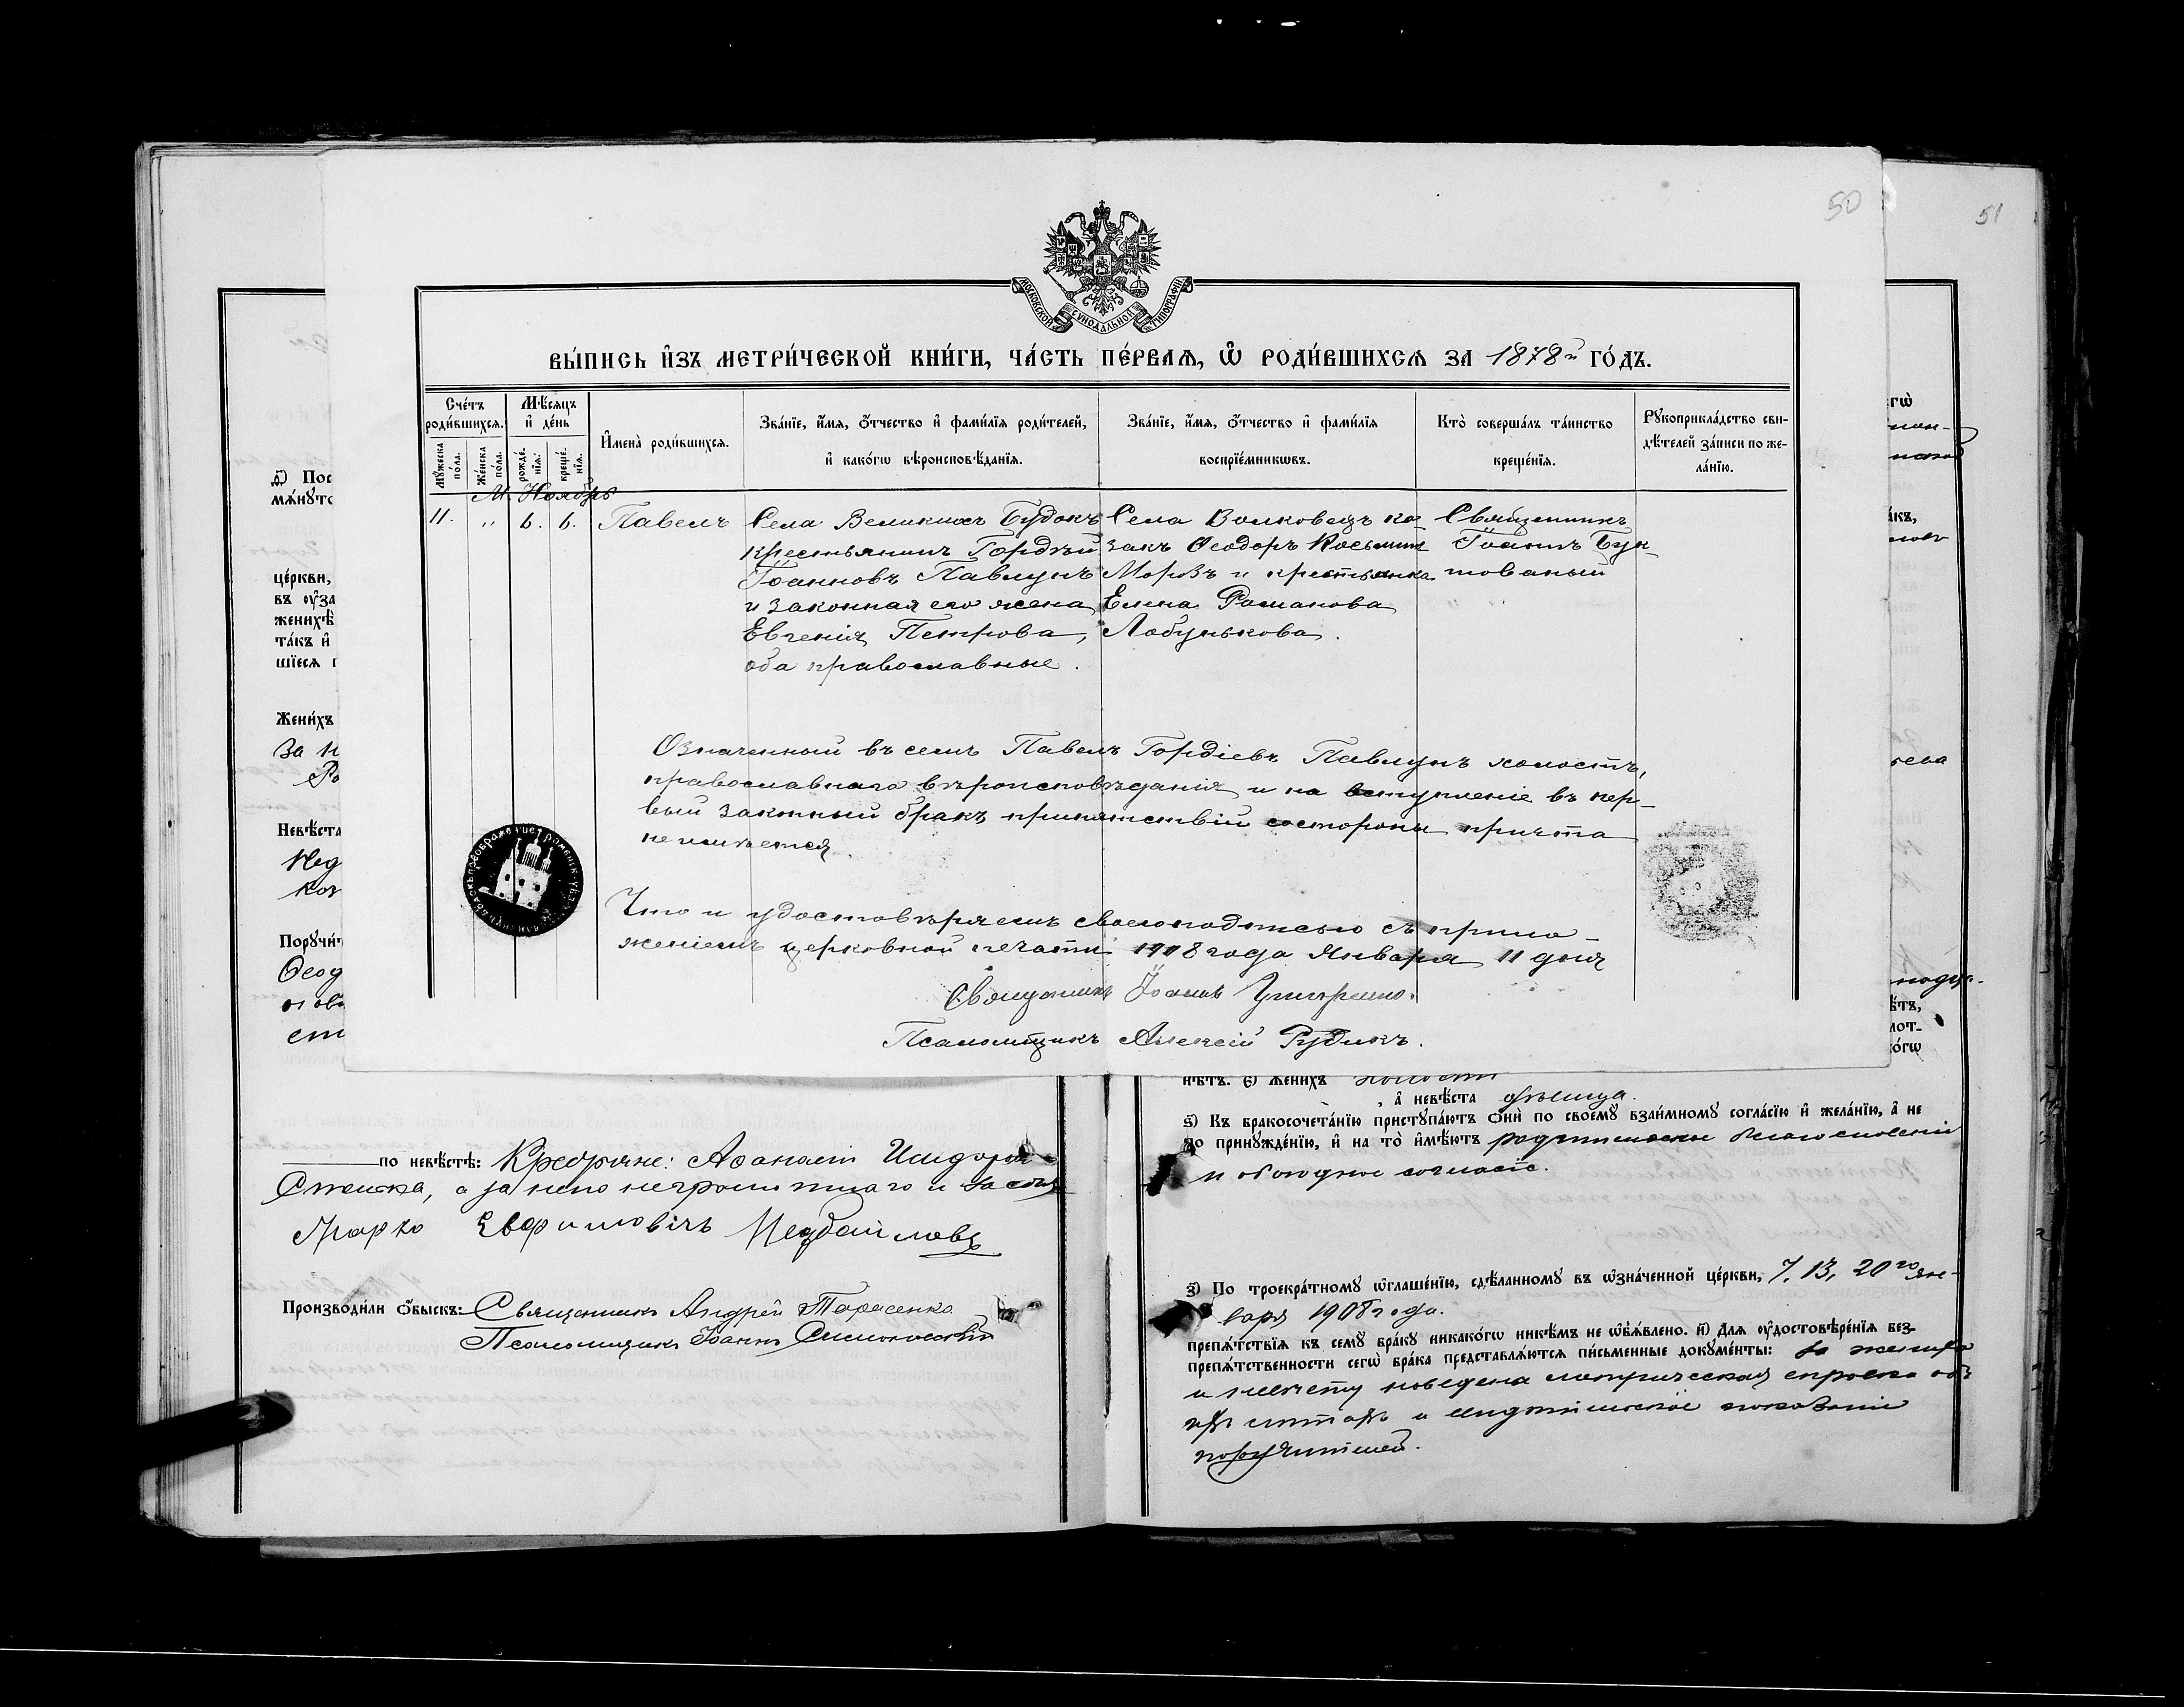 50
51
МОСКОВСКОЙ СУНОДАЛЬНОЙ ТИПОГРАФІИ
ВЫ́ПИСЬ И҆ЗЪ МЕТРИ́ЧЕСКОЙ КНИ́ГИ, ЧА́СТЬ ПЕ́РВАЯ, Ѽ РОДИ́ВШИХСЯ ЗА 1878й ГО́ДЪ.
Сче́тъ роди́вшихся.
Мꙋ́жеска по́ла.
Же́нска по́ла.
Мѣ́сяцъ и҆ де́нь
рожде́нїя.
креще́нїя.
И҆мена̀ роди́вшихся.
Зва́нїе, и҆́мя, ѻ҆́тчество и҆ фами́лїя роди́телей,
и҆ како́гѡ вѣроисповѣ́данїя.
Зва́нїе, и҆́мя, ѻ҆́тчество и҆ фами́лїя
воспрїе́мникѡвъ.
Кто̀ соверша́лъ та́инство
креще́нїя.
Рꙋкоприкла́дство сви-
дѣ́телей за́писи по же-
ла́нїю.
М. Ноябрь
11. „ 6. 6. Павелъ
Села Великихъ Будокъ
крестьянинъ Гордѣй
Іоанновъ Павлунъ
и законная его жена
Евгенія Петрова,
оба православные.
Села Волковецъ ко-
закъ Ѳеодоръ Косьмин
Морозъ и крестьянка
Елена Романова
Лобунькова.
Священникъ
Іоаннъ Бук-
тованый
Означенный въ семъ Павелъ Гордіевъ Павлунъ холостъ,
православнаго вѣроисповѣданія и на вступленіе въ пер-
вый законный бракъ препятствій состороны причта
не имѣется.
Что и удостовѣряемъ своеюподписью съ прило-
женіемъ церковной печати 1908 года Января 11 дня
Священникъ Іоаннъ
Псаломщикъ Алексій Рудикъ.
Пос
мя́нꙋто
це́ркви,
въ ᲂу҆за
женихѣ
та́къ и҆
шїеся п
Жени́хъ
За н
Невѣ́ста
Нед
коз
Порꙋчи́т
Ѳеод
ст
по невѣ́стѣ: Аѳанасій
Стенска, а за него неграмотнаго и за себя
Марко Евфимовичъ Недбайловъ
Производи́ли ѻ҆́быскъ: Священникъ Андрей Тарасенко
Псаломщикъ Іоаннъ
нѣ́тъ. є҃) Жени́хъ холостъ
, а҆ невѣ́ста дѣвица.
ѕ҃) Къ бракосочета́нїю пристꙋпа́ютъ ѻ҆нѝ по своемꙋ̀ взаи́мномꙋ согла́сїю и҆ жела́нїю, а҆ не
по принꙋжде́нїю, и҆ на то̀ и҆мѣ́ютъ родительское благословеніе
и обоюдное согласіе.
з҃) По троекра́тномꙋ ѡ҆глаше́нїю, сдѣ́ланномꙋ въ ѡ҆зна́ченной це́ркви, 7, 13, 20го Ян-
варя 1908 года.
препя́тствїя къ семꙋ̀ бра́кꙋ никако́гѡ никѣ́мъ не ѡ҆б̾я́влено. и҃) Для ᲂу҆достовѣре́нїя без-
препя́тственности сегѡ̀ бра́ка представля́ются пи́сьменные докꙋме́нты: за жениха
и невѣсту поведена метрическая справка объ
ихъ лѣтахъ и показаніе
поручителей.